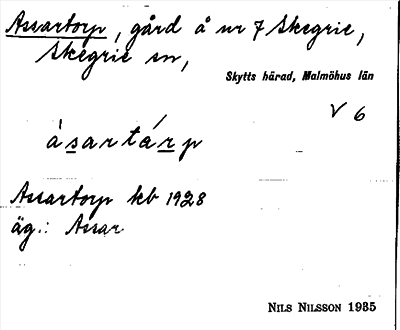 Assartorp, gård å nr 7 Skegrie,
Skegrie sn,
Skytts härad, Malmöhus län
V 6
àsartárp
Assartorp kb 1928
äg.: Assar
NILS NILSSON 1935